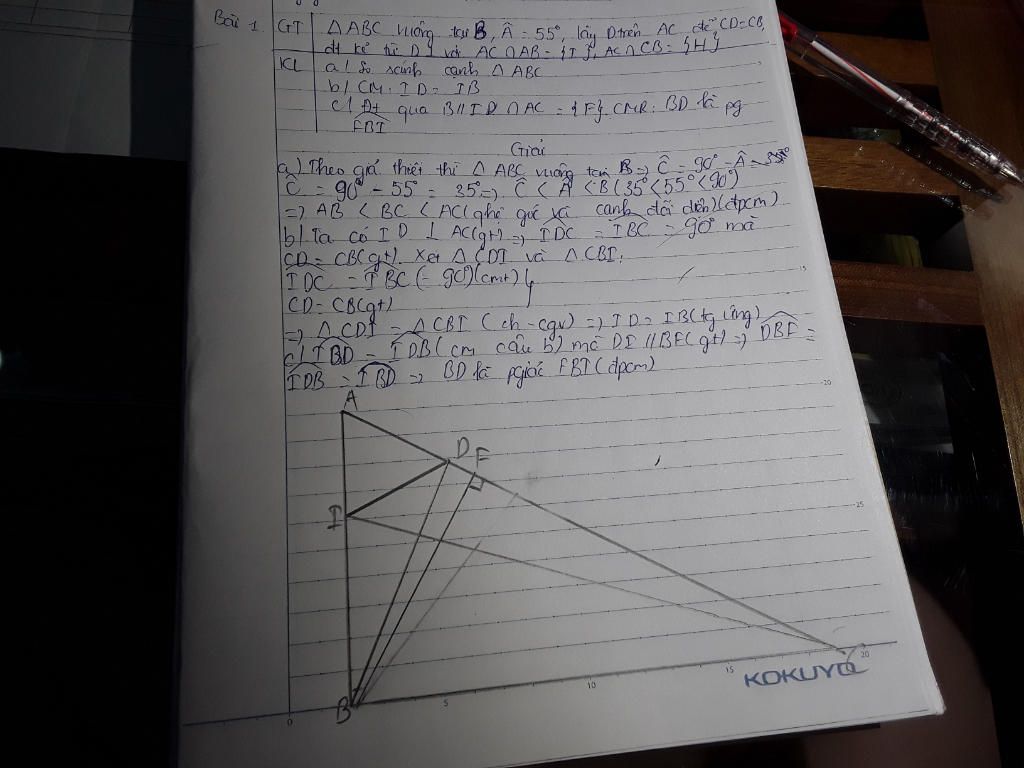 Bài 1. GT | Δ ABC vuông tại B, Â = 55°, lấy D trên AC để CD=CB,
đt kẻ từ D ⊥ với AC ∩ AB = {I}, AC ∩ CB = {H}
KL | a/ So sánh cạnh Δ ABC
b/ CM: ID = IB
c/ Đt qua B // ID ∩ AC = {F}. CMR: BD là pg
FBI
Giải
a) Theo giả thiết thì Δ ABC vuông tại B => Ĉ = 90° - Â = 35°
Ĉ = 90° - 55° = 35° => Ĉ < Â < B (35° < 55° < 90°)
=> AB < BC < AC (qhê góc và cạnh đối diện) (đpcm)
b/ Ta có ID ⊥ AC (gt) => IDC = IBC = 90° mà
CD = CB (gt). Xét Δ CDI và Δ CBI:
IDC = IBC (= 90°) (cmt)
CD = CB (gt)
=> Δ CDI = Δ CBI (ch - cgv) => ID = IB (tg ứng)
c/ IBD = IDB (cm câu b) mà DI // BF (gt) => DBF =
IDB = IBD => BD là pgiác FBI (đpcm)
A
D F
I
B
C
0 5 10 15 20
15
20
25
KOKUYO